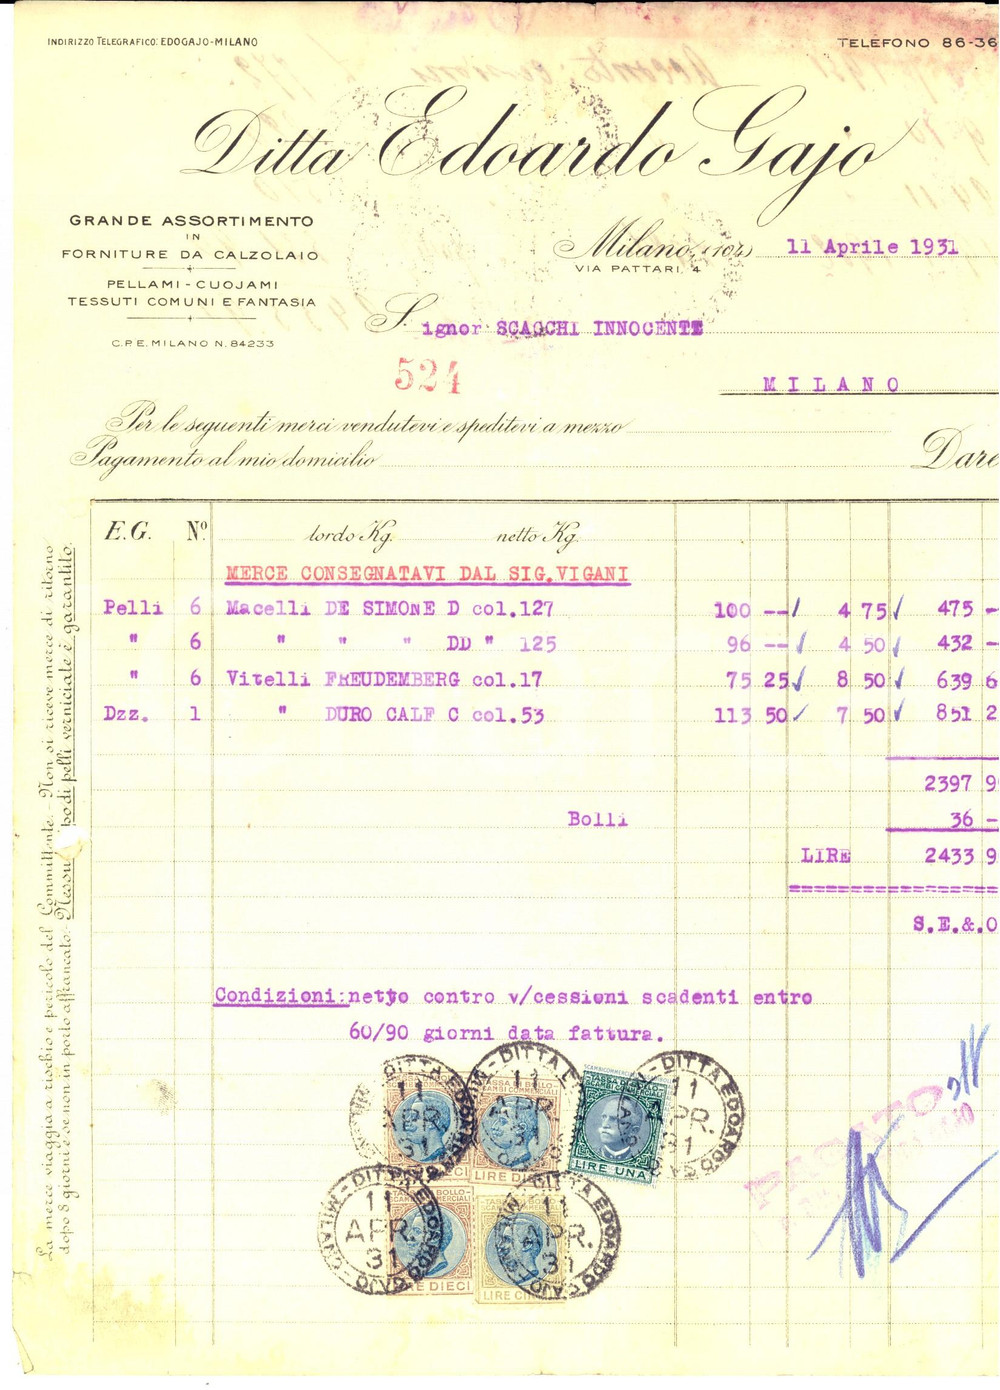 INDIRIZZO TELEGRAFICO: EDOGAJO-MILANO
TELEFONO 86-36
Ditta Edoardo Gajo
GRANDE ASSORTIMENTO
IN
FORNITURE DA CALZOLAIO
PELLAMI - CUOJAMI
TESSUTI COMUNI E FANTASIA
C.P.E. MILANO N. 84233
Milano (104) 11 Aprile 1931
VIA PATTARI, 4
Signor SCAOCHI INNOCENTE
524
MILANO
Per le seguenti merci vendutevi e speditevi a mezzo
Pagamento al mio domicilio
Dare
E.G. No. lordo Kg. netto Kg.
MERCE CONSEGNATAVI DAL SIG.VIGANI
Pelli 6 Macelli DE SIMONE D col.127 100 -- 4 75 475 -
" 6 " " " DD " 125 96 -- 4 50 432 --
" 6 Vitelli FREUDEMBERG col.17 75 25 8 50 639 6
Dzz. 1 " DURO CALF C col.53 113 50 7 50 851 2
2397 9
Bolli 36 -
LIRE 2433 9
S.E.&.O
Condizioni:netto contro v/cessioni scadenti entro
60/90 giorni data fattura.
La merce viaggia a rischio e pericolo del Committente. - Non si riceve merce di ritorno
dopo 8 giorni e se non in porto affrancato. - Nessun tipo di pelli verniciate è garantito.
DITTA EDOARDO GAJO - MILANO
11 APR. 31
TASSA DI BOLLO
LIRE DIECI
LIRE UNA
PAGATO